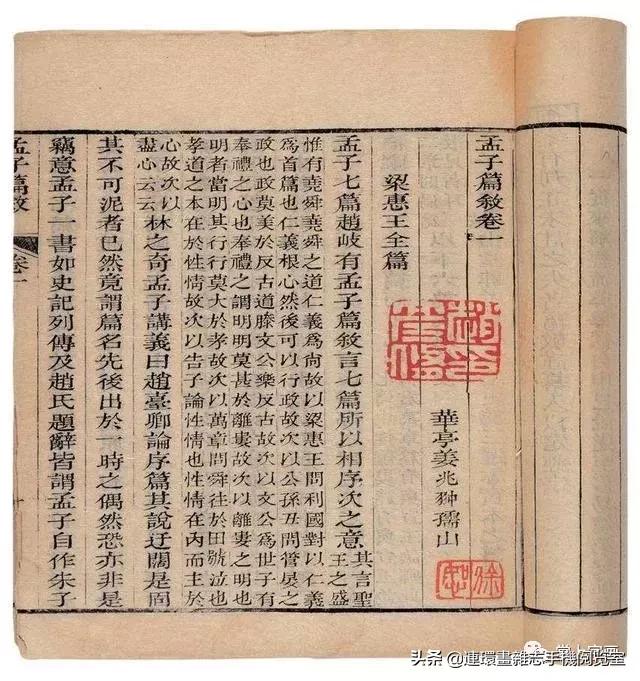 孟子篇敘卷一
華亭姜兆翀孺山
梁惠王全篇
孟子七篇趙岐有孟子篇敘言七篇所以相序次之意其言聖王之盛
惟有堯舜堯舜之道仁義為尚故以梁惠王問利國對以仁義
為首篇也仁義根心然後可以行政故次以公孫丑問管晏之
政也政莫美於反古道滕文公樂反古故次以文公為世子有
奉禮之心也奉禮之謂明明莫甚於離婁故次以離婁之明也
明者當明其行行莫大於孝故次以萬章問舜往於田號泣也
孝道之本在於性情故次以告子論性情也性情在內而主於
心故次以盡心云云林之奇孟子講義曰趙臺卿論序篇其說迂闊是固
其不可泥者已然竟謂篇名先後出於一時之偶然恐亦非是
竊意孟子一書如史記列傳及趙氏題辭皆謂孟子自作朱子
孟子篇敘
卷一
头条 @連環畫雜志手機阅览室